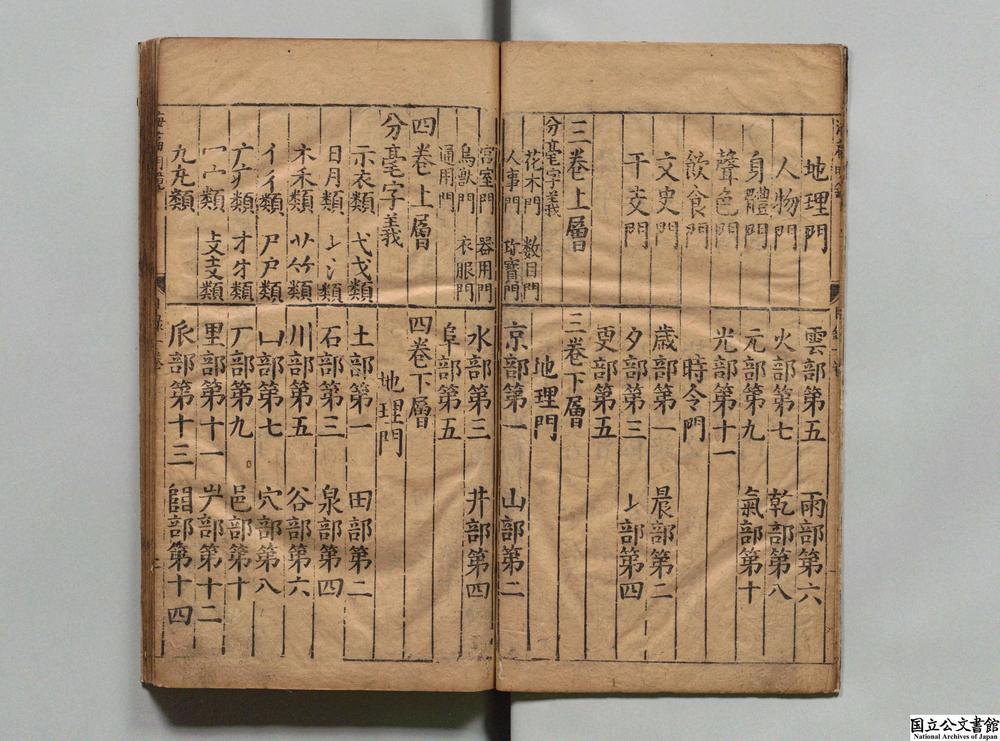 地理門
人物門
身體門
聲色門
飲食門
文史門
干支門
三卷上層
分毫字義
花木門 數目門
人事門 珍寶門
雲部第五 雨部第六
火部第七 乾部第八
元部第九 氣部第十
光部第十一
時令門
歲部第一 晨部第二
夕部第三 部第四
更部第五
三卷下層
地理門
京部第一 山部第二
宮室門 器用門
鳥獸門 衣服門
通用門
四卷上層
分毫字義
示衣類 弋戈類
日月類 冫氵類
木禾類 艸竹類
亻彳類 尸戶類
疒類 才牛類
冖宀類 支類
九丸類
水部第三 井部第四
阜部第五
四卷下層
地理門
土部第一 田部第二
石部第三 泉部第四
川部第五 谷部第六
凵部第七 穴部第八
厂部第九 邑部第十
里部第十一 屵部第十二
𠂢部第十三 部第十四
国立公文書館
National Archives of Japan